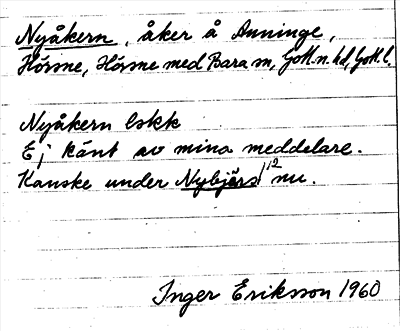 Nyåkern, åker å Anninge,
Hörsne, Hörsne med Bara sn, Gotl. n. hd, Gotl. l.
Nyåkern lskk
Ej känt av mina meddelare.
Kanske under Nybjärs 1/12 nu.
Inger Eriksson 1960